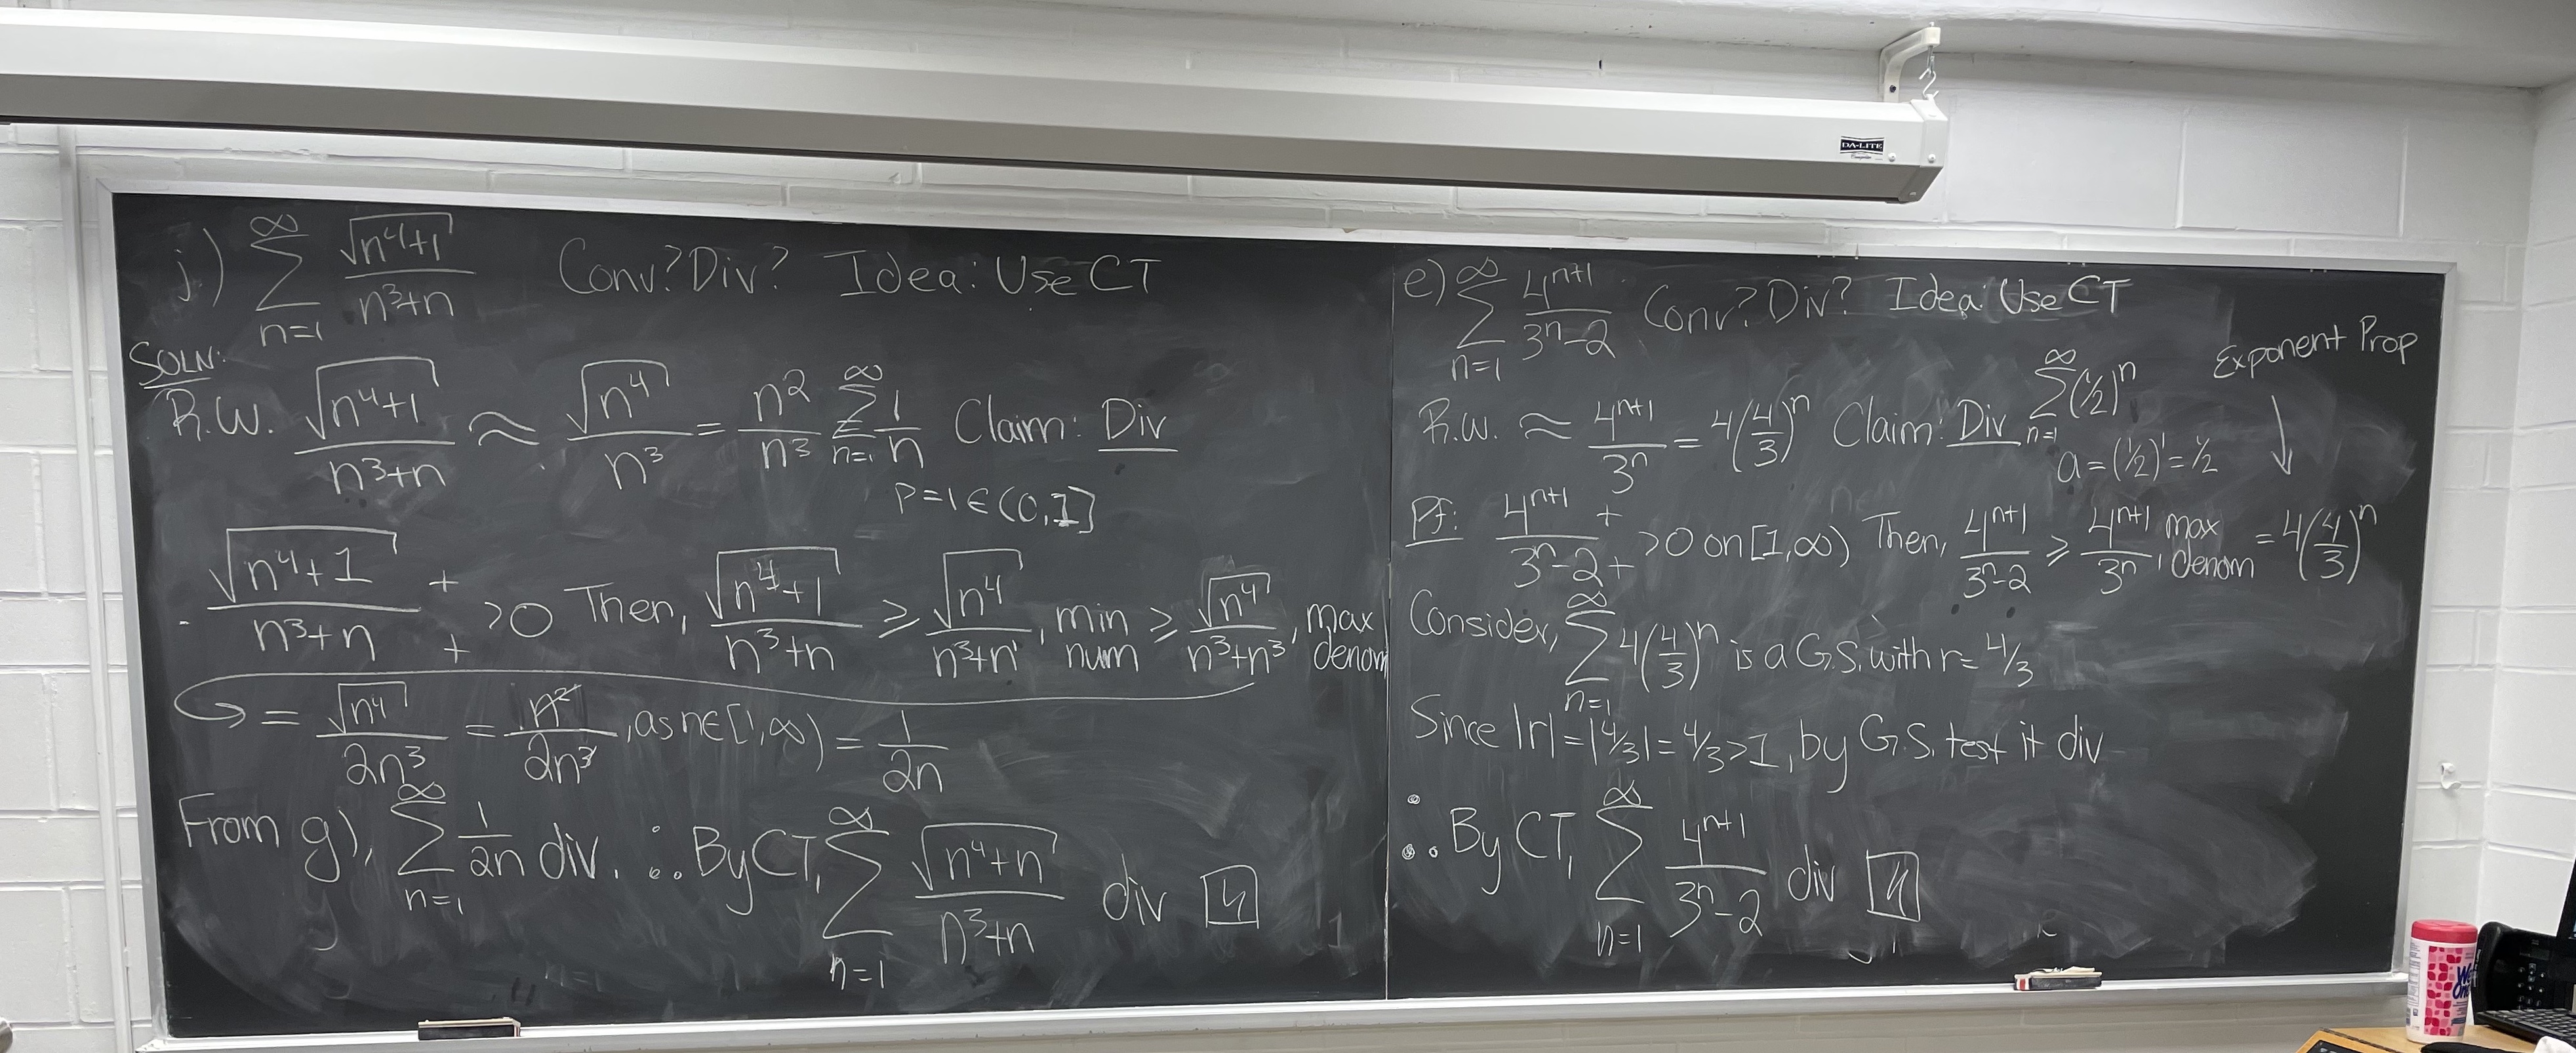 DA-LITE
j.) ∞ ∑ n=1 √(n⁴+1) / (n³+n) Conv? Div? Idea: Use CT
SOLN:
R.W. √(n⁴+1) / (n³+n) ≈ √(n⁴) / n³ = n² / n³ ∞ ∑ n=1 1/n Claim: Div
P=1∈(0,1]
√(n⁴+1) + / (n³+n) + >0 Then, √(n⁴+1) / (n³+n) ≥ √(n⁴) / (n³+n), min num ≥ √(n⁴) / (n³+n³), max denom
= √(n⁴) / 2n³ = n² / 2n³, as n∈[1,∞) = 1 / 2n
From g), ∞ ∑ n=1 1/2n div. ∴ By CT, ∞ ∑ n=1 √(n⁴+n) / (n³+n) div
e) ∞ ∑ n=1 4ⁿ⁺¹ / (3ⁿ-2) Conv? Div? Idea: Use CT
Exponent Prop ↓
R.W. ≈ 4ⁿ⁺¹ / 3ⁿ = 4(4/3)ⁿ Claim: Div ∞ ∑ n=1 (1/2)ⁿ
a = (1/2)¹ = 1/2
Pf: 4ⁿ⁺¹ + / (3ⁿ-2) + >0 on [1,∞) Then, 4ⁿ⁺¹ / (3ⁿ-2) ≥ 4ⁿ⁺¹ / 3ⁿ, max denom = 4(4/3)ⁿ
Consider, ∞ ∑ n=1 4(4/3)ⁿ is a G.S. with r= 4/3
Since |r|=|4/3|=4/3>1, by G.S. test it div
∴ By CT, ∞ ∑ n=1 4ⁿ⁺¹ / (3ⁿ-2) div